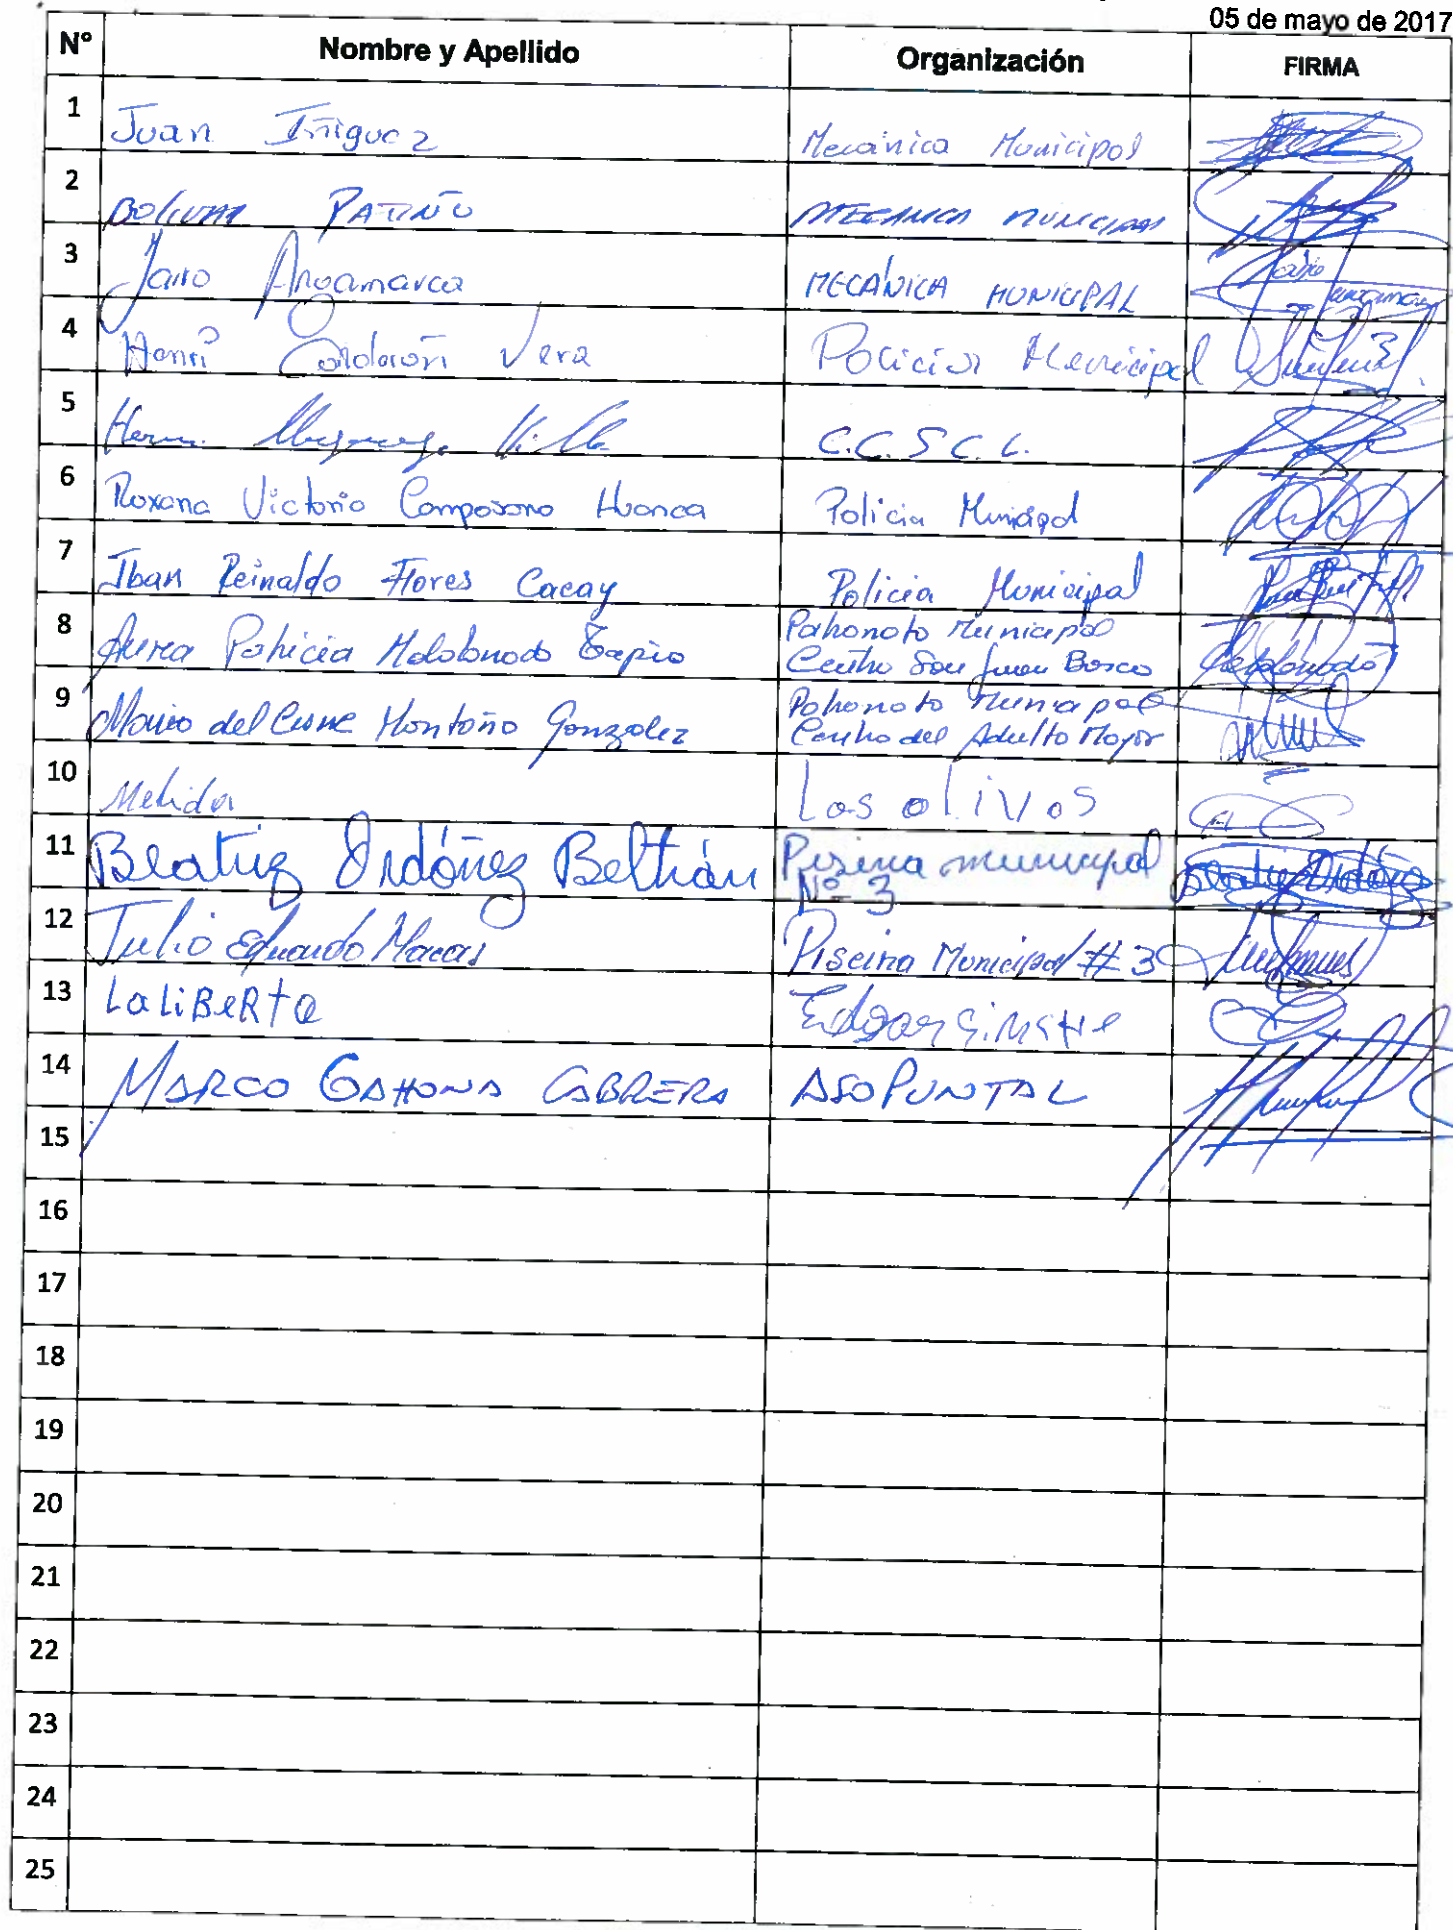 05 de mayo de 2017
N° Nombre y Apellido Organización FIRMA
1 Juan Iñiguez Mecánica Municipal
2 Bolivar PATIÑO MECANICA MUNICIPAL
3 Jairo Angamarca MECÁNICA MUNICIPAL
4 Henrí Calderón Vera Policia Municipal
5 C.C.S.C.L.
6 Roxana Victoria Camposano Huanca Policia Municipal
7 Iban Reinaldo Flores Cacay Policia Municipal
8 Aurea Patricia Maldonado Tapia Patronato Municipal
Centro San Juan Bosco
9 María del Cisne Montaño Gonzalez Patronato Municipal
Centro del Adulto Mayor
10 Los olivos
11 Beatriz Ordóñez Beltrán Piscina municipal
Nº 3
12 Julio Eduardo Macas Piscina Municipal #3
13 LaLiBeRta
14 MARCO GAHONA CABRERA ASOPUNTAL
15
16
17
18
19
20
21
22
23
24
25